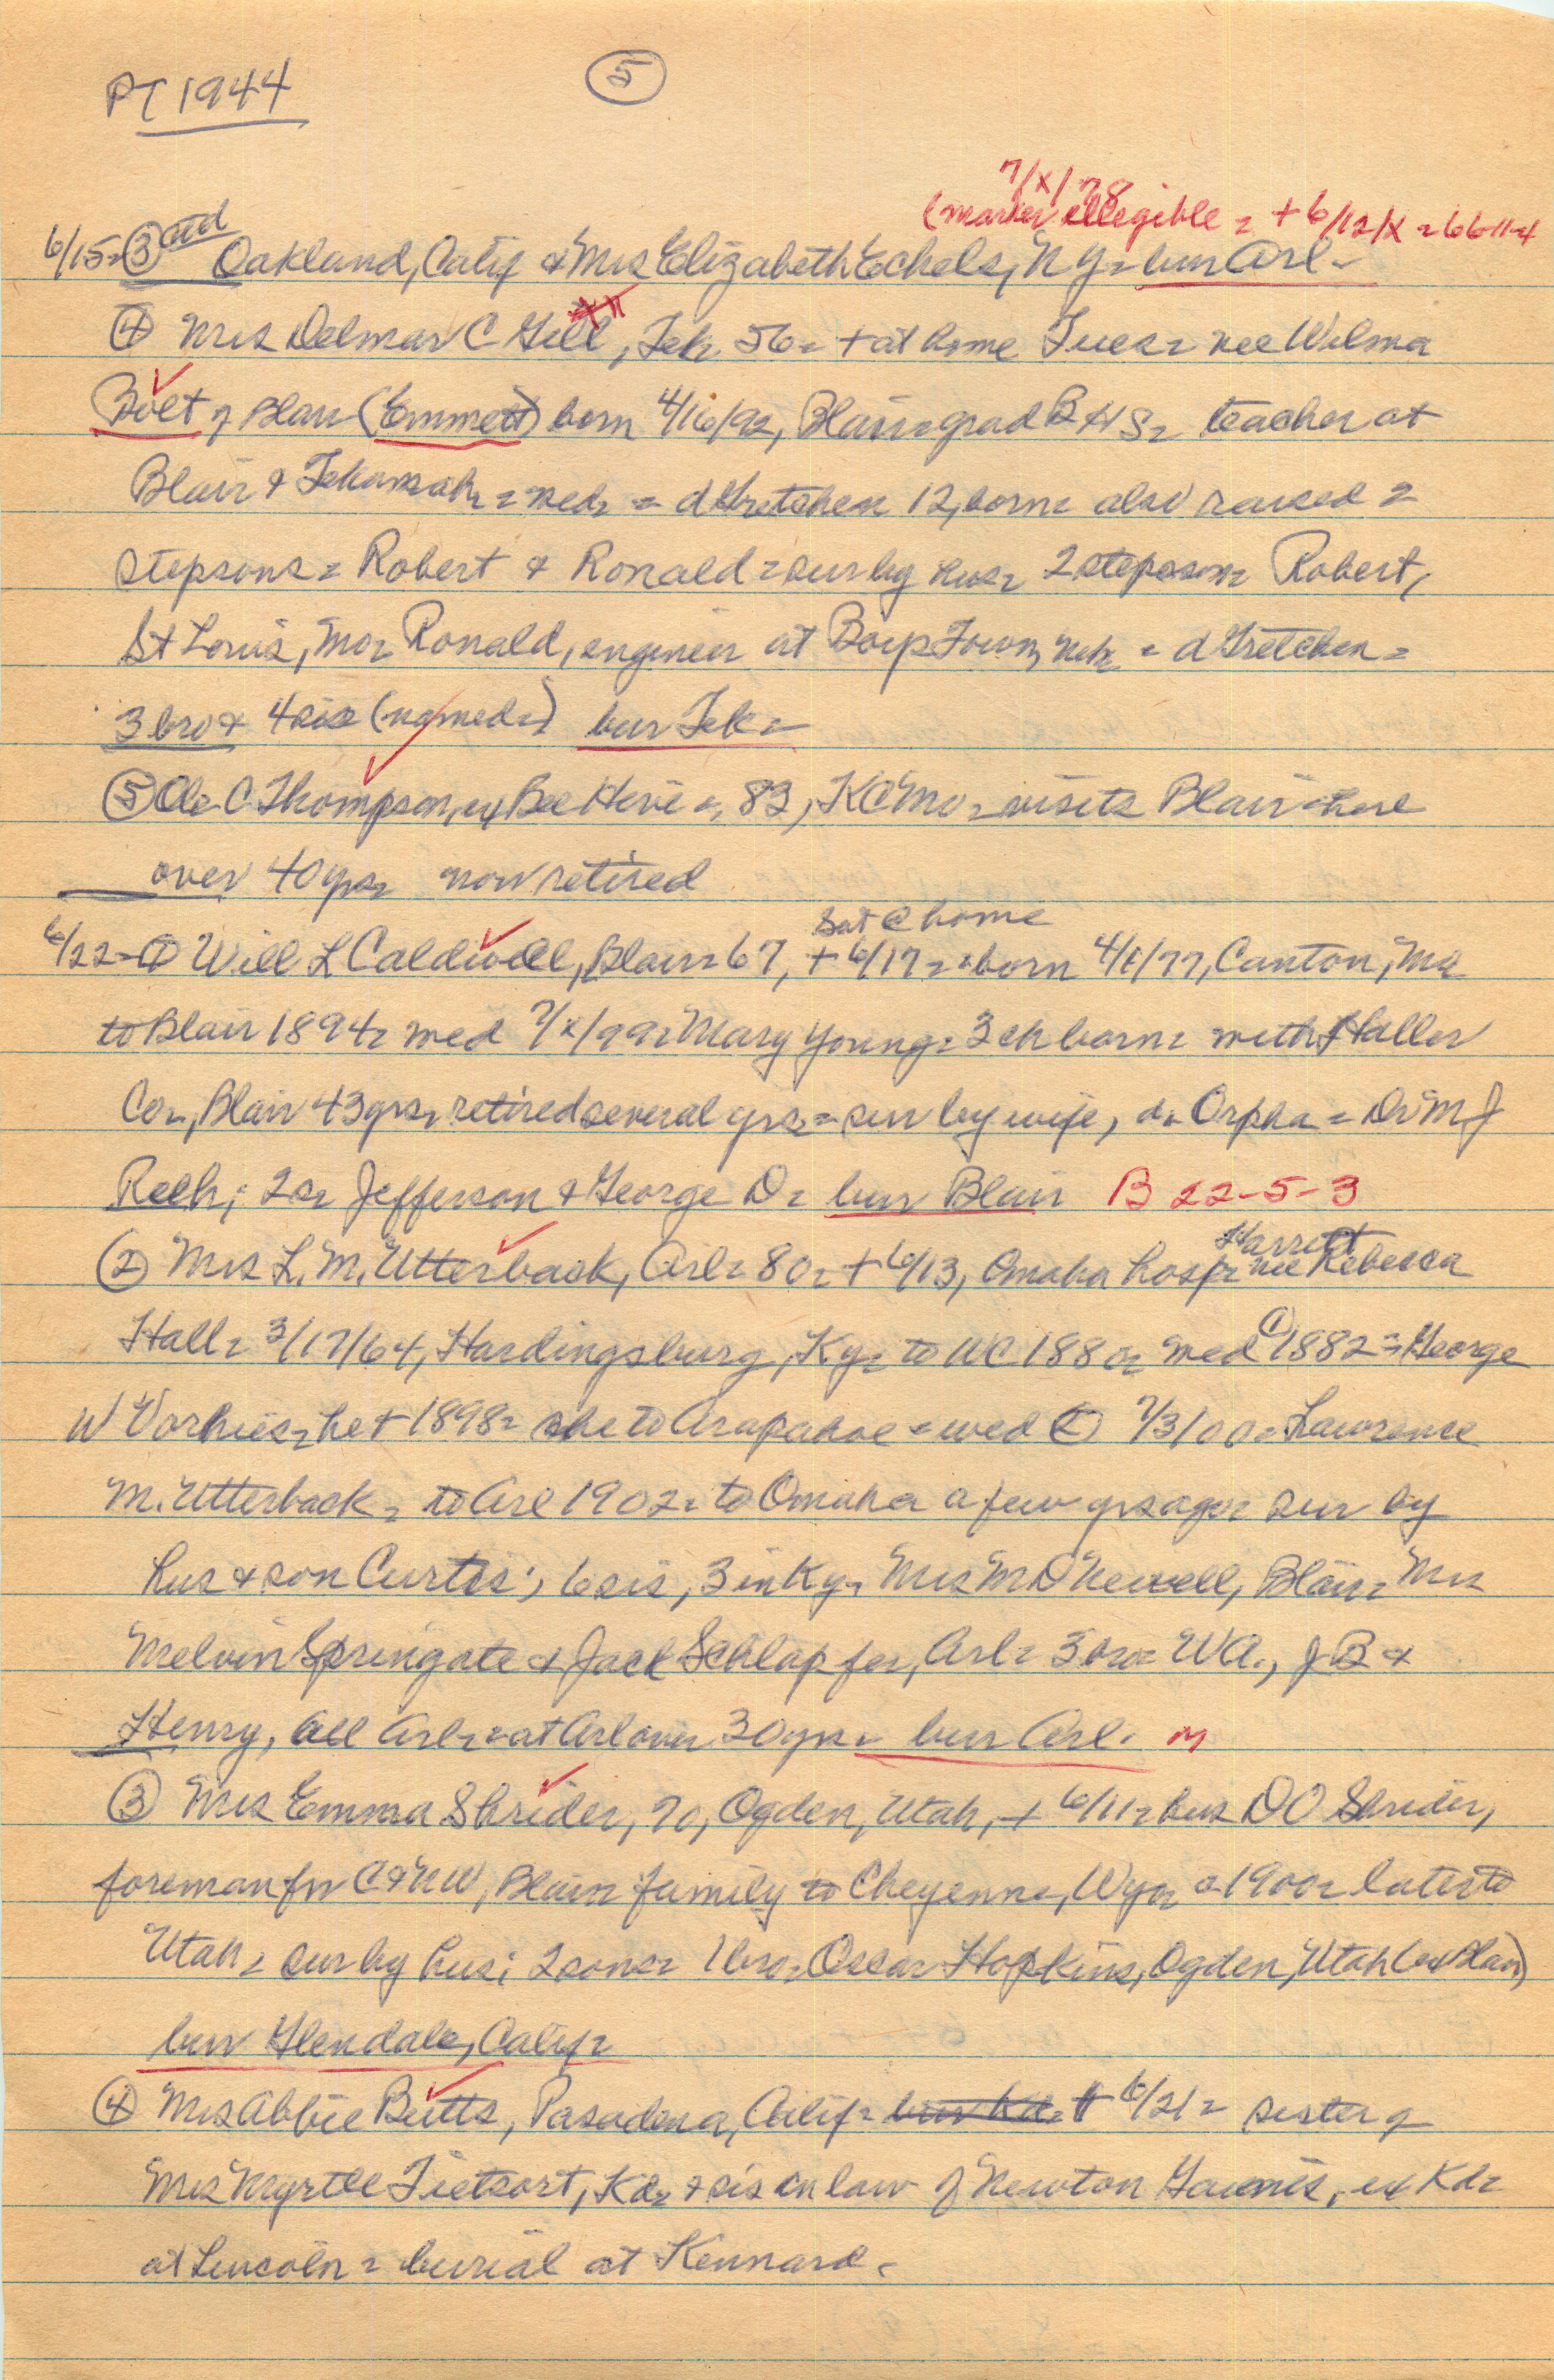 PT 1944
5
7/x/78
(marker illegible = + 6/12/x = 66-11-4
6/15 = 3 ctd Oakland, Calif & Mrs Elizabeth Echels, NY = bur Arl =
4 Mrs Delmar C Gell, Tek 56 = + at home Tues = nee Wilma
Bolt of Blair (Emmett) born 4/16/92, Blair = grad BHS = teacher at
Blair & Tekamah = wed = d Gretchen 12, born = also raised 2
stepsons = Robert & Ronald = sur by hus = 2 stepsons = Robert,
St Louis, Mo = Ronald, engineer at Boys Town, Neb = d Gretchen =
3 bro & 4 sis (named =) bur Tek =
5 Ole C Thompson, ex Bee Hive =, 83, KC Mo = visits Blair = here
over 40 yrs = now retired
Sat @ home
6/22 = 1 Will L Caldwell, Blair = 67, + 6/17 = born 4/1/77, Canton, Mo
to Blair 1894 = wed 7/x/99 = Mary Young = 3 ch born = with Haller
Co =, Blair 43 yrs = retired several yrs = sur by wife, d = Orpha = Dr M J
Reeh; 2 s = Jefferson & George D = bur Blair B 22-5-3
Harriet
2 Mrs L. M. Utterback, Arl = 80 = + 6/13, Omaha hosp = nee Rebecca
Hall = 3/17/64, Hardingsburg, Ky = to WC 1880 = wed 1 1882 = George
W Vorhies = he + 1898 = she to Arapahoe = wed 2 7/3/00 = Lawrence
M. Utterback = to Arl 1902 = to Omaha a few yrs ago = sur by
hus & son Curtis; 6 sis, 3 in Ky = Mrs M D Newell, Blair = Mrs
Melvin Springate & Jack Schlapfer, Arl = 3 bro = W A., J B &
Henry, all Arl = at Arl over 30 yrs = bur Arl. m
3 Mrs Emma Shrider, 70, Ogden, Utah, + 6/11 = hus D O Shrider,
foreman for C & NW, Blair = family to Cheyenne, Wyo = 1900 = later to
Utah = sur by hus; 2 sons = 1 bro = Oscar Hopkins, Ogden, Utah (ex Blair)
bur Glendale, Calif =
4 Mrs Abbie Butts, Pasadena, Calif = bur Kd = + 6/21 = sister of
Mrs Myrtle Tietsort, Kd = & sis in law of Newton Gaines, ex Kd =
at Lincoln = burial at Kennard =